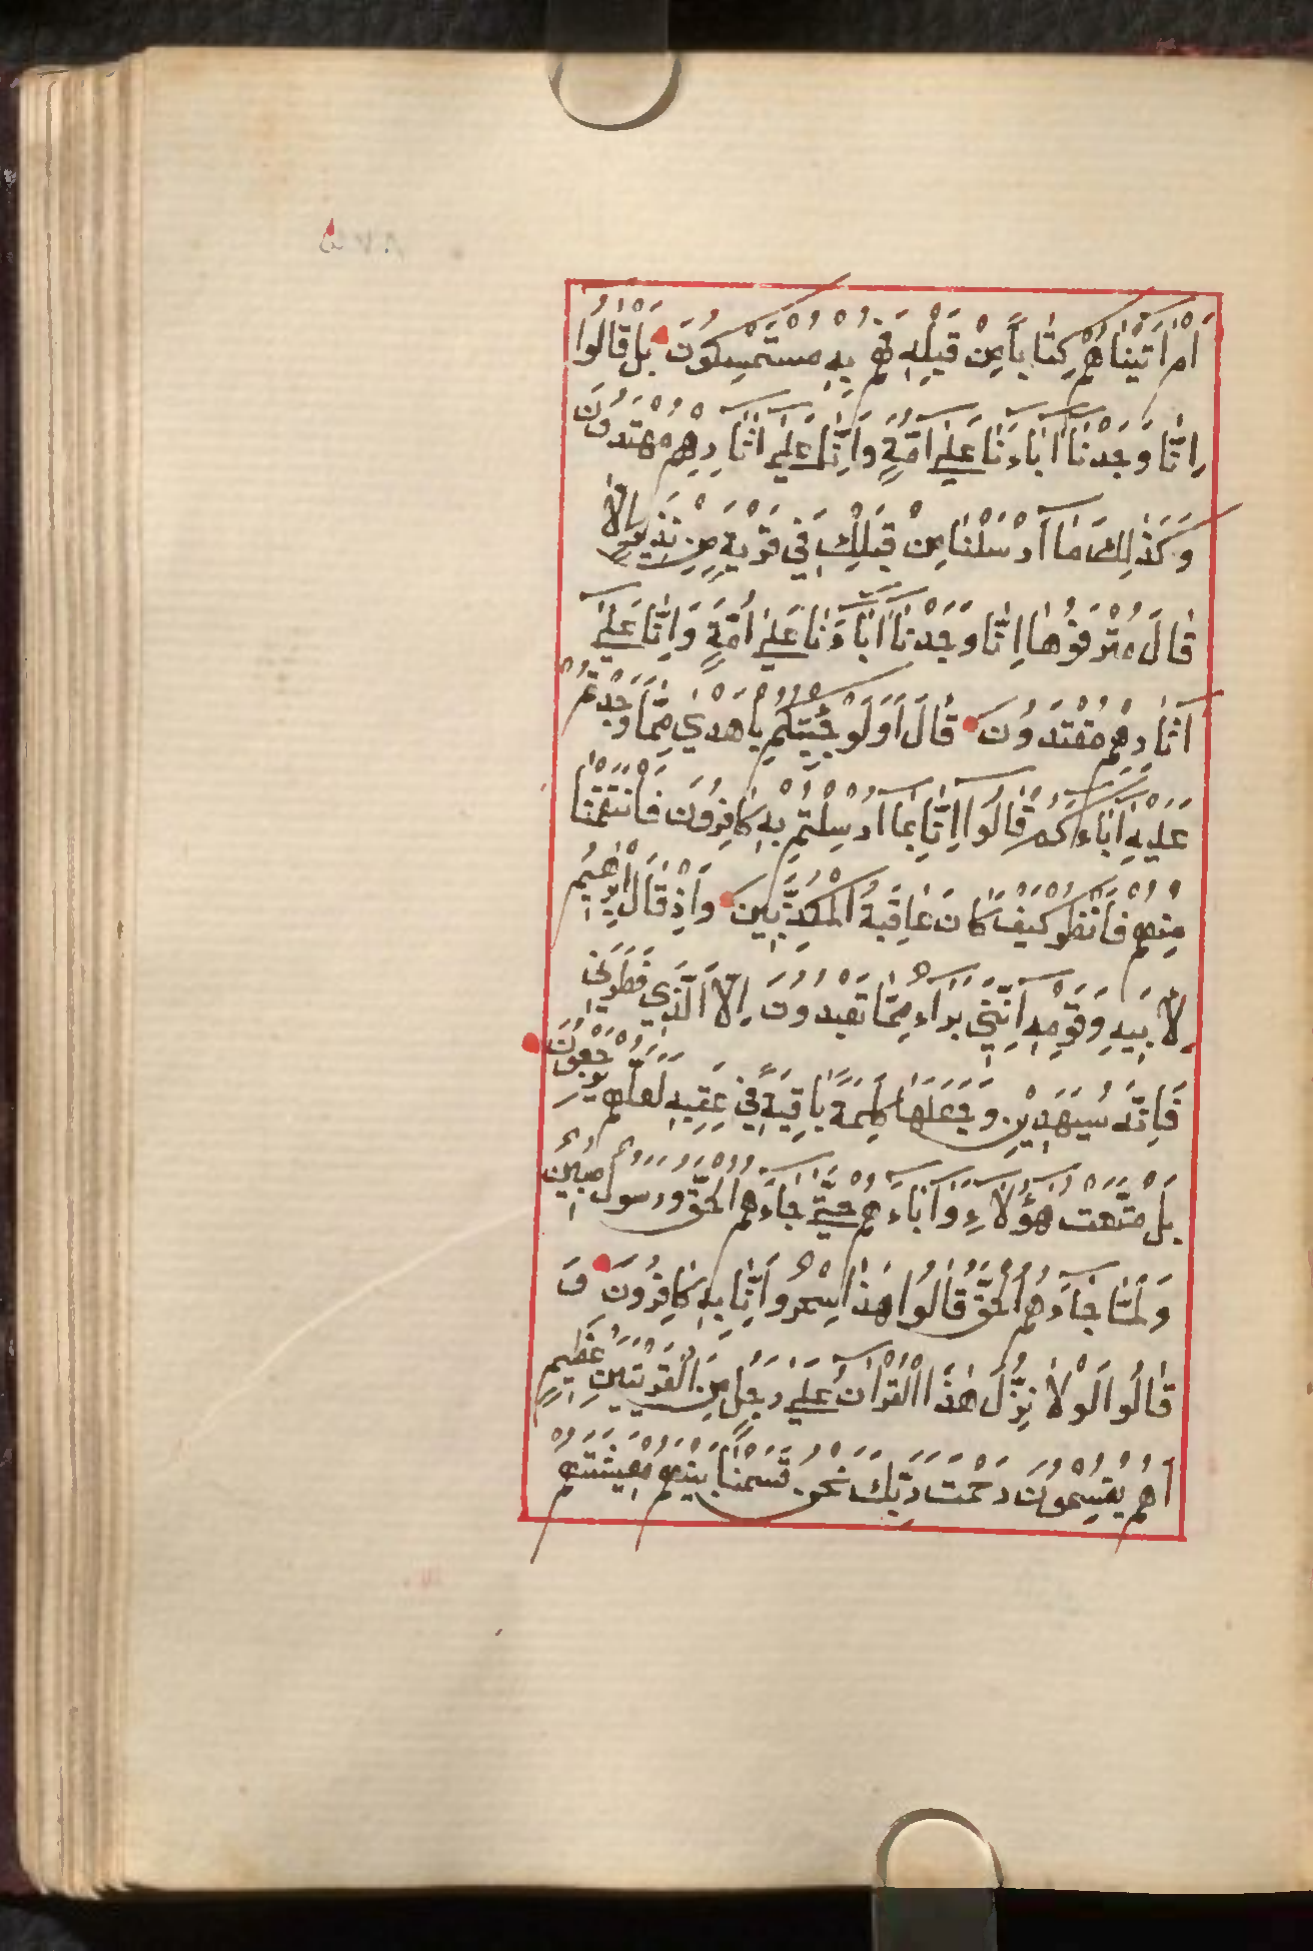 اَمْ اٰتَيْنَاهُمْ كِتَاباً مِنْ قَبْلِهِ فَهُمْ بِهِ مُسْتَمْسِكُونَ بَلْ قَالُوا
اِنَّا وَجَدْنَا اٰبَاءَنَا عَلٰى اُمَّةٍ وَاِنَّا عَلٰى اٰثَارِهِمْ مُهْتَدُونَ
وَكَذٰلِكَ مَا اَرْسَلْنَا مِنْ قَبْلِكَ فِي قَرْيَةٍ مِنْ نَذِيرٍ اِلَّا
قَالَ مُتْرَفُوهَا اِنَّا وَجَدْنَا اٰبَاءَنَا عَلٰى اُمَّةٍ وَاِنَّا عَلٰى
اٰثَارِهِمْ مُقْتَدُونَ قَالَ اَوَلَوْ جِئْتُكُمْ بِاَهْدٰى مِمَّا وَجَدْتُمْ
عَلَيْهِ اٰبَاءَكُمْ قَالُوا اِنَّا بِمَا اُرْسِلْتُمْ بِهِ كَافِرُونَ فَانْتَقَمْنَا
مِنْهُمْ فَانْظُرْ كَيْفَ كَانَ عَاقِبَةُ الْمُكَذِّبِينَ وَاِذْ قَالَ اِبْرٰهِيمُ
لِاَبِيهِ وَقَوْمِهِ اِنَّنِي بَرَاءٌ مِمَّا تَعْبُدُونَ اِلَّا الَّذِي فَطَرَنِي
فَاِنَّهُ سَيَهْدِينِ وَجَعَلَهَا كَلِمَةً بَاقِيَةً فِي عَقِبِهِ لَعَلَّهُمْ يَرْجِعُونَ
بَلْ مَتَّعْتُ هٰؤُلَاءِ وَاٰبَاءَهُمْ حَتّٰى جَاءَهُمُ الْحَقُّ وَرَسُولٌ مُبِينٌ
وَلَمَّا جَاءَهُمُ الْحَقُّ قَالُوا هٰذَا سِحْرٌ وَاِنَّا بِهِ كَافِرُونَ وَ
قَالُوا لَوْلَا نُزِّلَ هٰذَا الْقُرْاٰنُ عَلٰى رَجُلٍ مِنَ الْقَرْيَتَيْنِ عَظِيمٍ
اَهُمْ يَقْسِمُونَ رَحْمَتَ رَبِّكَ نَحْنُ قَسَمْنَا بَيْنَهُمْ مَعِيشَتَهُمْ